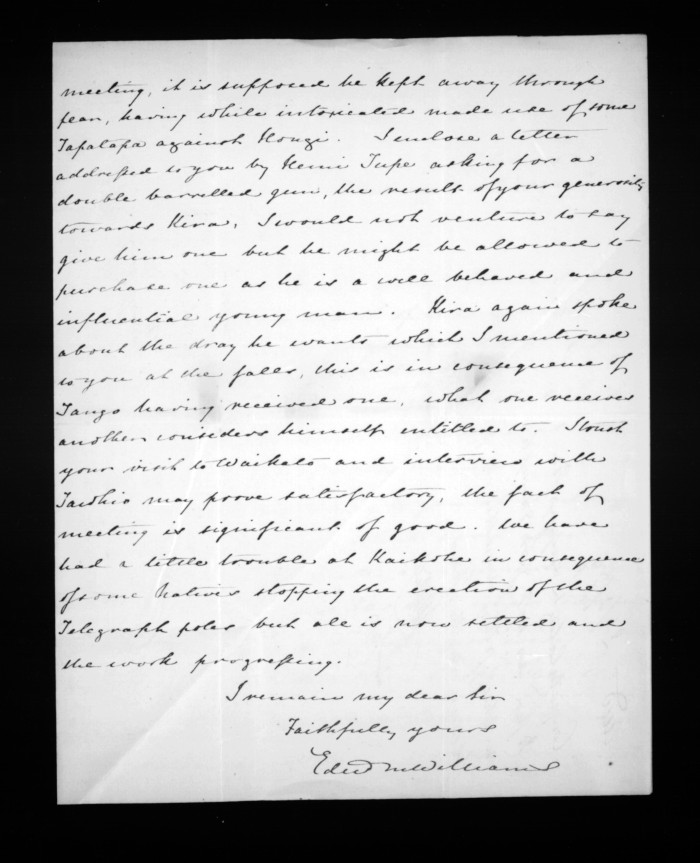 meeting, it is supposed he kept away through
fear, having while intoxicated made use of some
Tapatapa against Hongi. I enclose a letter
addressed to you by Hemi Tupe asking for a
double barrelled gun, the result of your generosity
towards Hira, I would not venture to say
give him one but he might be allowed to
purchase one as he is a well behaved and
influential young man. Hira again spoke
about the dray he wants which I mentioned
to you at the falls, this is in consequence of
Tango having received one, what one receives
another considers himself entitled to. I trust
your visit to Waikato and interview with
Tawhio may prove satisfactory, the fact of
meeting is significant of good. We have
had a little trouble at Kaikohe in consequence
of some Natives stopping the erection of the
Telegraph poles but all is now settled and
the work progressing.
I remain my dear Sir
Faithfully yours
Edwd M Williams